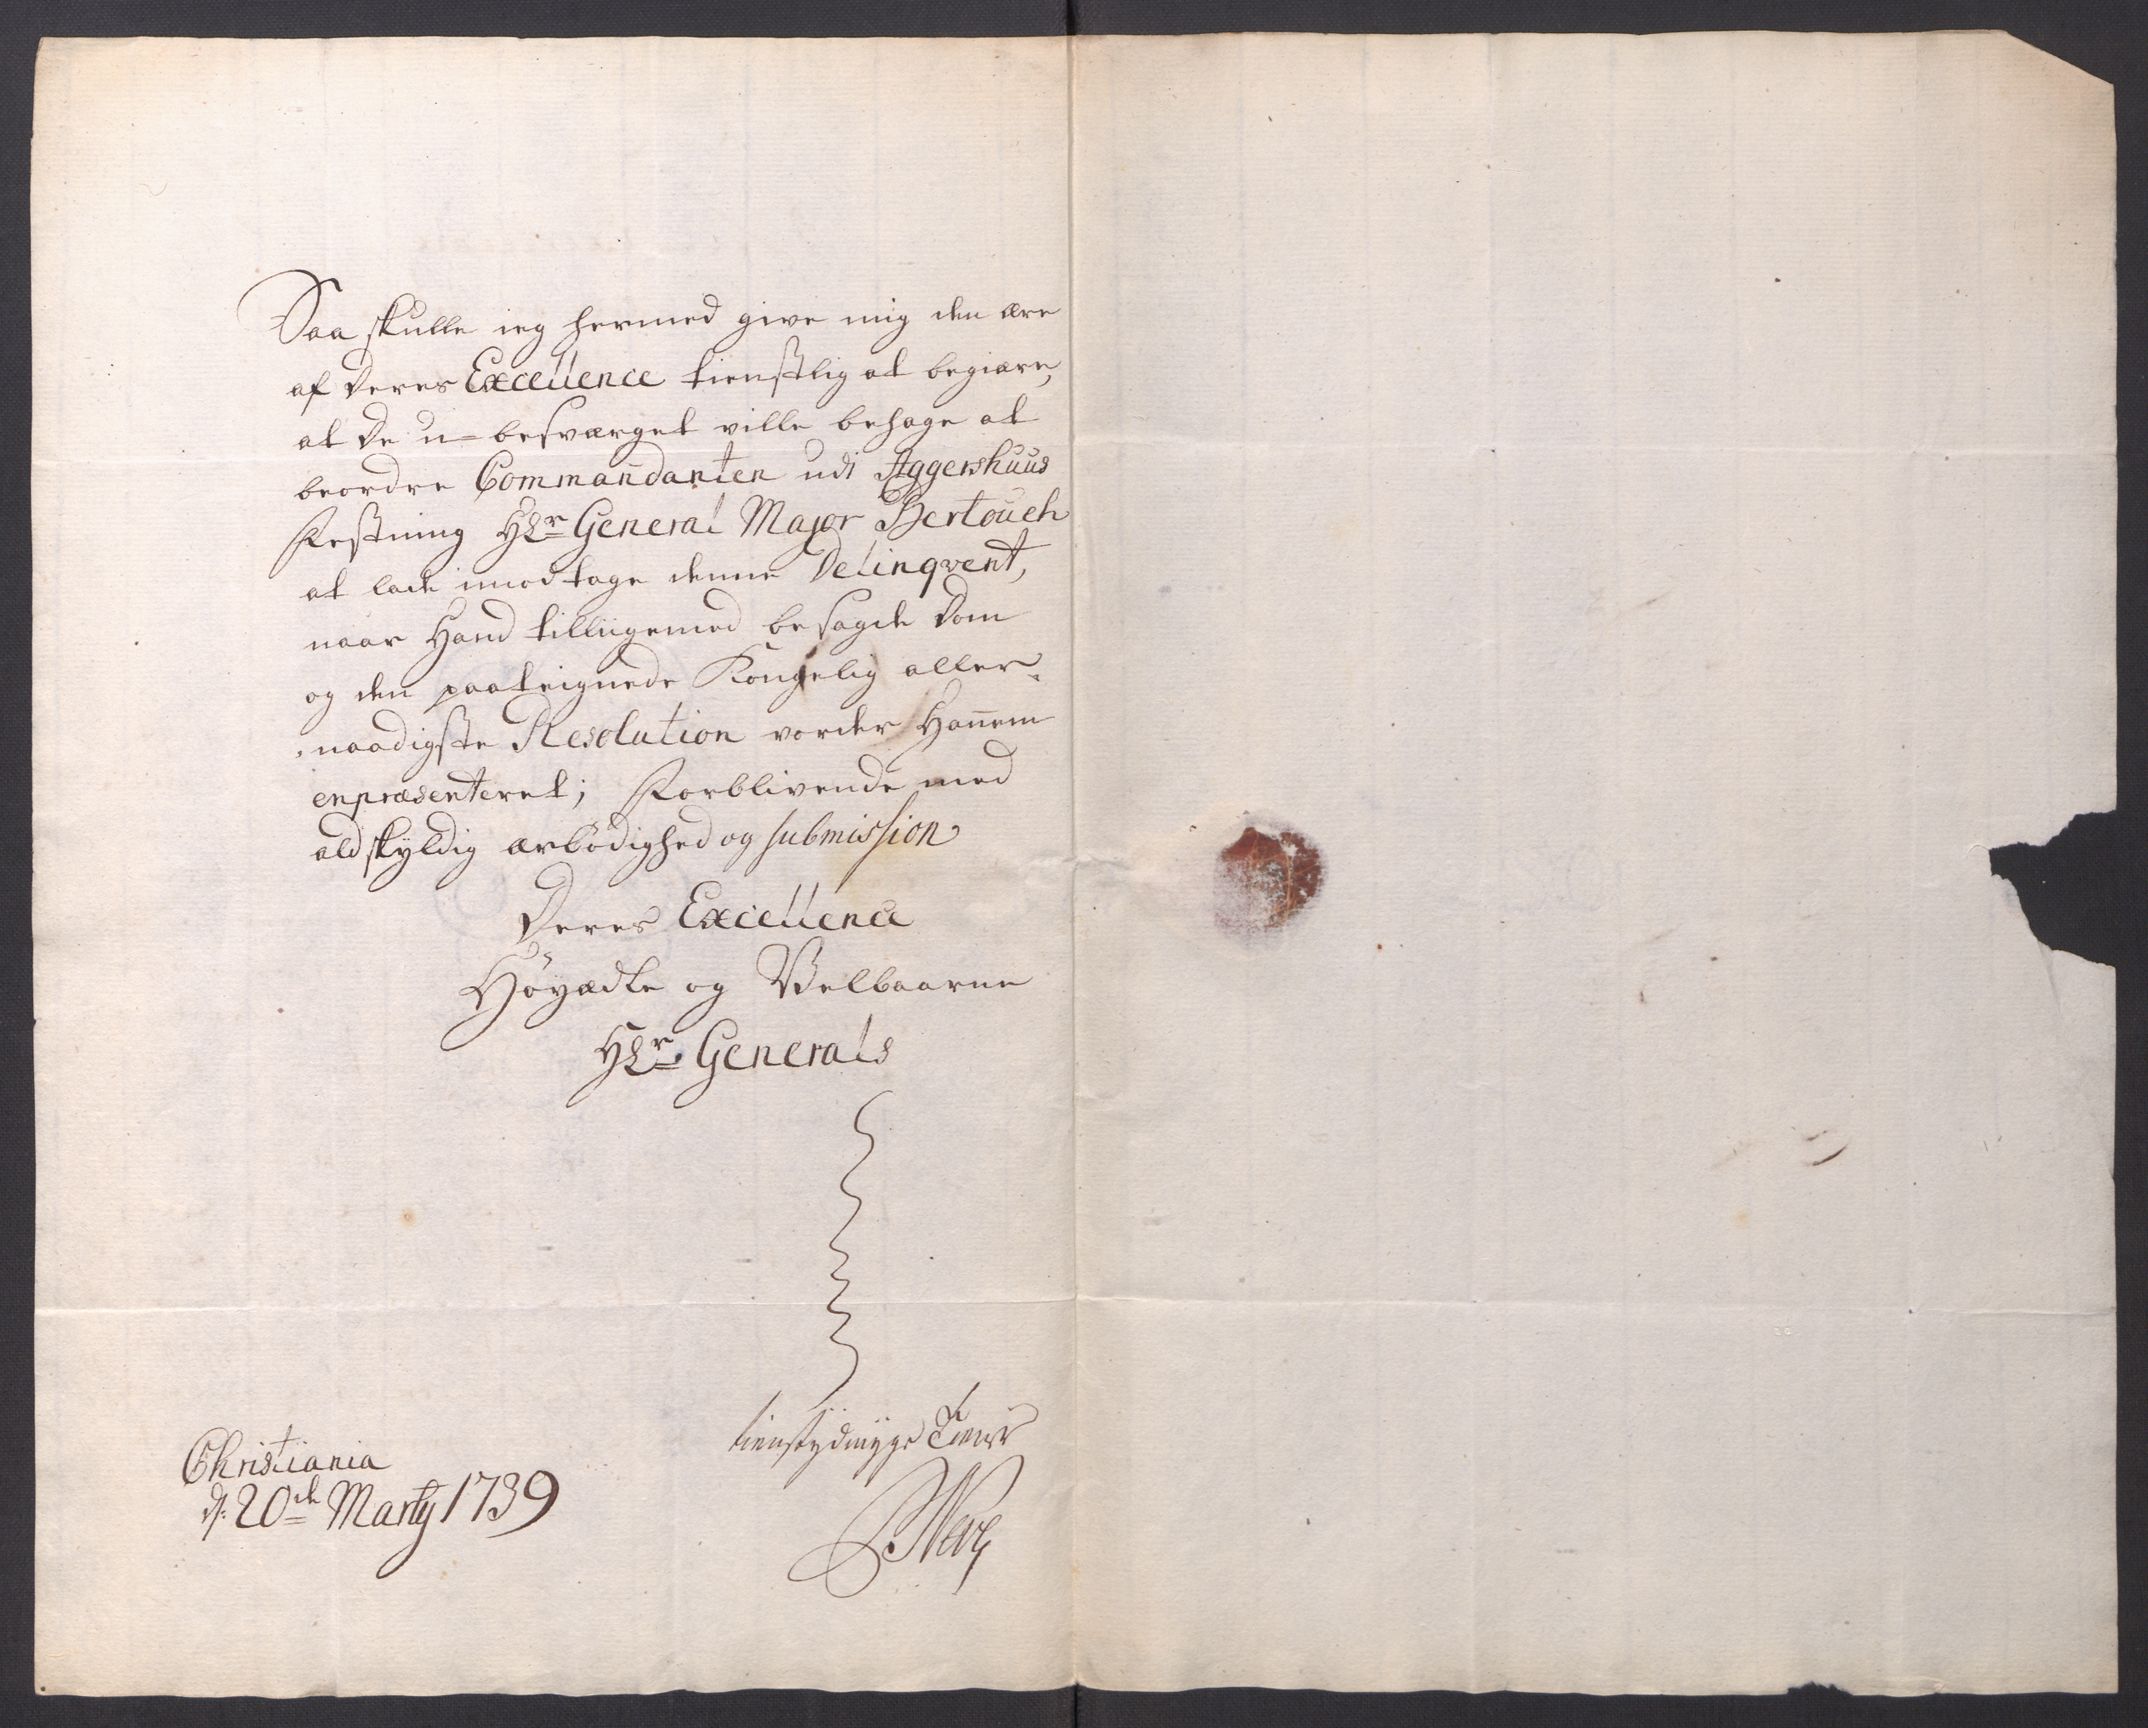 Saa skulle ieg hermed give mig den ære
af Deres Excellence tienstlig at begiære,
at De u=besværget ville behage at
beordre Commandanten udi Aggershuus
Festning Hr General Major Bertouch
at lade imodtage denne Delinqvent,
naar Hand tilligemed besagde Dom
og den paateignede Kongelig aller-
naadigste Resolution vorder Hannem
enpræsenteret; Forblivende med
ald skyldig ærbødighed og submission
Deres Excellence
Høyædle og Velbaarne
Hr Generals
tienstydmyge Tiener
Christiania
d: 20de Marty 1739